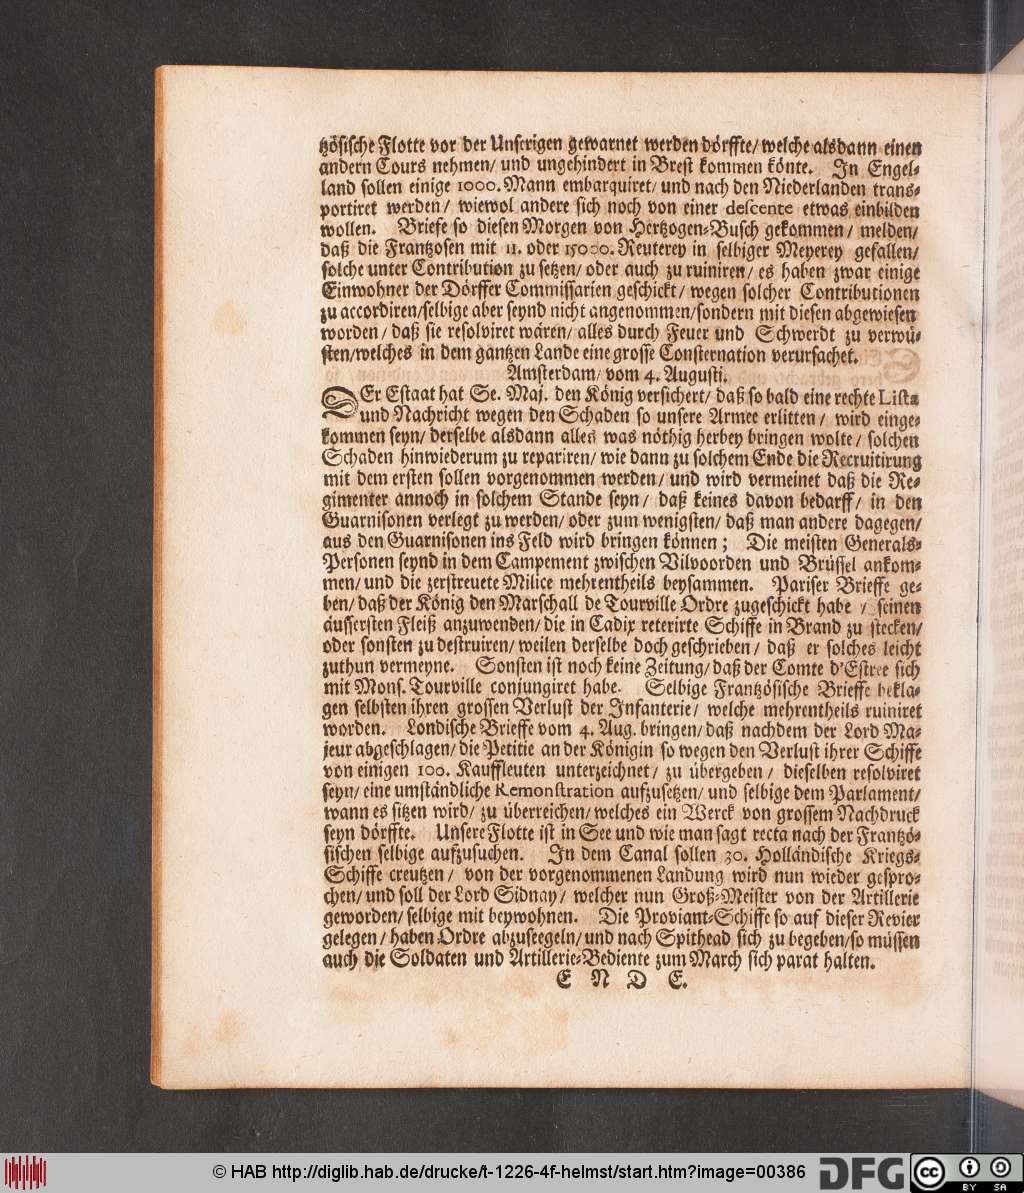 tzösische Flotte vor der Unserigen gewarnet werden dörffte/ welche alsdann einen
andern Cours nehmen/ und ungehindert in Brest kommen könte. In Engel-
land sollen einige 1000. Mann embarquiret/ und nach den Niederlanden trans-
portiret werden/ wiewol andere sich noch von einer descente etwas einbilden
wollen. Briefe so diesen Morgen von Hertzogen-Busch gekommen/ melden/
daß die Frantzosen mit 11. oder 15000. Reuterey in selbiger Meyerey gefallen/
solche unter Contribution zu setzen/ oder auch zu ruiniren/ es haben zwar einige
Einwohner der Dörffer Commissarien geschickt/ wegen solcher Contributionen
zu accordiren/selbige aber seynd nicht angenommen/sondern mit diesen abgewiesen
worden/ daß sie resolviret wären/ alles durch Feuer und Schwerdt zu verwü-
sten/welches in dem gantzen Lande eine grosse Consternation verursachet.
Amsterdam/ vom 4. Augusti.
DEr Estaat hat Se. Maj. den König versichert/ daß so bald eine rechte Lista
und Nachricht wegen den Schaden so unsere Armee erlitten/ wird einge-
kommen seyn/ derselbe alsdann alles was nöthig herbey bringen wolte/ solchen
Schaden hinwiederum zu repariren/ wie dann zu solchem Ende die Recruitirung
mit dem ersten sollen vorgenommen werden/ und wird vermeinet daß die Re-
gimenter annoch in solchem Stande seyn/ daß keines davon bedarff/ in den
Guarnisonen verlegt zu werden/ oder zum wenigsten/ daß man andere dagegen/
aus den Guarnisonen ins Feld wird bringen können; Die meisten Generals-
Personen seynd in dem Campement zwischen Vilvoorden und Brüssel ankom-
men/ und die zerstreuete Milice mehrentheils beysammen. Pariser Brieffe ge-
ben/ daß der König den Marschall de Tourville Ordre zugeschickt habe/ seinen
äussersten Fleiß anzuwenden/ die in Cadix reterirte Schiffe in Brand zu stecken/
oder sonsten zu destruiren/ weilen derselbe doch geschrieben/ daß er solches leicht
zuthun vermeyne. Sonsten ist noch keine Zeitung/ daß der Comte d'Estree sich
mit Mons. Tourville conjungiret habe. Selbige Frantzösische Brieffe bekla-
gen selbsten ihren grossen Verlust der Infanterie/ welche mehrentheils ruiniret
worden. Londische Brieffe vom 4. Aug. bringen/ daß nachdem der Lord Ma-
jeur abgeschlagen/ die Petitie an der Königin so wegen den Verlust ihrer Schiffe
von einigen 100. Kauffleuten unterzeichnet/ zu übergeben/ dieselben resolviret
seyn/ eine umständliche Remonstration aufzusetzen/ und selbige dem Parlament/
wann es sitzen wird/ zu überreichen/ welches ein Werck von grossem Nachdruck
seyn dörffte. Unsere Flotte ist in See und wie man sagt recta nach der Frantzö-
sischen selbige aufzusuchen. In dem Canal sollen 30. Holländische Kriegs-
Schiffe creutzen/ von der vorgenommenen Landung wird nun wieder gespro-
chen/ und soll der Lord Sidnay/ welcher nun Groß-Meister von der Artillerie
geworden/ selbige mit beywohnen. Die Proviant-Schiffe so auf dieser Revier
gelegen/ haben Ordre abzuseegeln/ und nach Spithead sich zu begeben/so müssen
auch die Soldaten und Artillerie-Bediente zum March sich parat halten.
E N D E.
© HAB http://diglib.hab.de/drucke/t-1226-4f-helmst/start.htm?image=00386
DFG
cc BY SA